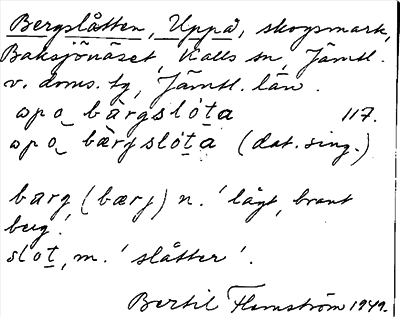 Bergslåtten, Uppå, skogsmark,
Baksjönäset, Kalls sn, Jämtl.
v. doms. tg, Jämtl. län.
upo bàrgslóta 117.
upo bærgslóta (dat. sing.)
barg (bærg) n. 'lågt, brant
berg.'
slot, m. 'slåtter'.
Bertil Flemström 1949.